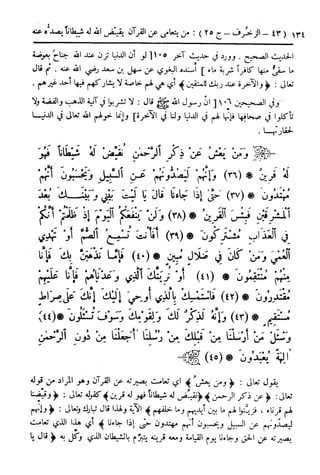 ١٣٤ (٤٣) - الزخرف - ج (٢٥) : من يتعامى عن القرآن يقيض الله له شيطاناً يصده عنه
الحديث الصحيح . وورد في حديث آخر [١٠٥] لو أن الدنيا تزن عند الله جناح بعوضة
ما سقى منها كافراً شربة ماء ] أسنده البغوي عن سهل بن سعد رضي الله عنه . ثم قال
تعالى : ﴿ والآخرة عند ربك للمتقين ﴾ أي هي لهم خاصة لا يشاركهم فيها أحد غيرهم .
وفي الصحيحين [١٠٦] أن رسول الله ﷺ قال : لا تشربوا في آنية الذهب والفضة ولا
تأكلوا في صحافها فإنها لهم في الدنيا ولنا في الآخرة] وإنما خولهم الله تعالى في الدنيا
لحقارتها .
وَمَن يَعْشُ عَن ذِكْرِ ٱلرَّحْمَٰنِ نُقَيِّضْ لَهُ شَيْطَانًا فَهُوَ
لَهُ قَرِينٌ * (٣٦) وَإِنَّهُمْ لَيَصُدُّونَهُمْ عَنِ ٱلسَّبِيلِ وَيَحْسَبُونَ أَنَّهُم
مُّهْتَدُونَ * (٣٧) حَتَّىٰ إِذَا جَاءَنَا قَالَ يَا لَيْتَ بَيْنِي وَبَيْنَكَ بُعْدَ
ٱلْمَشْرِقَيْنِ فَبِئْسَ ٱلْقَرِينُ * (٣٨) وَلَن يَنفَعَكُمُ ٱلْيَوْمَ إِذ ظَّلَمْتُمْ أَنَّكُمْ
فِي ٱلْعَذَابِ مُشْتَرِكُونَ * (٣٩) أَفَأَنتَ تُسْمِعُ ٱلصُّمَّ أَوْ تَهْدِي
ٱلْعُمْيَ وَمَن كَانَ فِي ضَلَالٍ مُّبِينٍ * (٤٠) فَإِمَّا نَذْهَبَنَّ بِكَ فَإِنَّا
مِنْهُم مُّنتَقِمُونَ * (٤١) أَوْ نُرِيَنَّكَ ٱلَّذِي وَعَدْنَاهُمْ فَإِنَّا عَلَيْهِم
مُّقْتَدِرُونَ * (٤٢) فَٱسْتَمْسِكْ بِٱلَّذِي أُوحِيَ إِلَيْكَ إِنَّكَ عَلَىٰ صِرَاطٍ
مُّسْتَقِيمٍ * (٤٣) وَإِنَّهُ لَذِكْرٌ لَّكَ وَلِقَوْمِكَ وَسَوْفَ تُسْأَلُونَ * (٤٤)
وَسْئَلْ مَنْ أَرْسَلْنَا مِن قَبْلِكَ مِن رُّسُلِنَا أَجَعَلْنَا مِن دُونِ ٱلرَّحْمَٰنِ
آلِهَةً يُعْبَدُونَ * (٤٥)
يقول تعالى : ﴿ ومن يعش ﴾ أي تعامت بصيرته عن القرآن وهو المراد من قوله
تعالى : ﴿ عن ذكر الرحمن ﴾ ﴿ نقيض له شيطاناً فهو له قرين ﴾ كقوله تعالى : ﴿ وقيضنا
لهم قرناء ، فزينوا لهم ما بين أيديهم وما خلفهم ﴾ الآية ولهذا قال تبارك وتعالى : ﴿ وإنهم
ليصدونهم عن السبيل ويحسبون أنهم مهتدون حتى إذا جاءنا ﴾ أي هذا الذي تعامت
بصيرته عن الحق وجاءنا يوم القيامة ومعه قرينه يتبرم بالشيطان الذي وكل به ﴿ قال يا